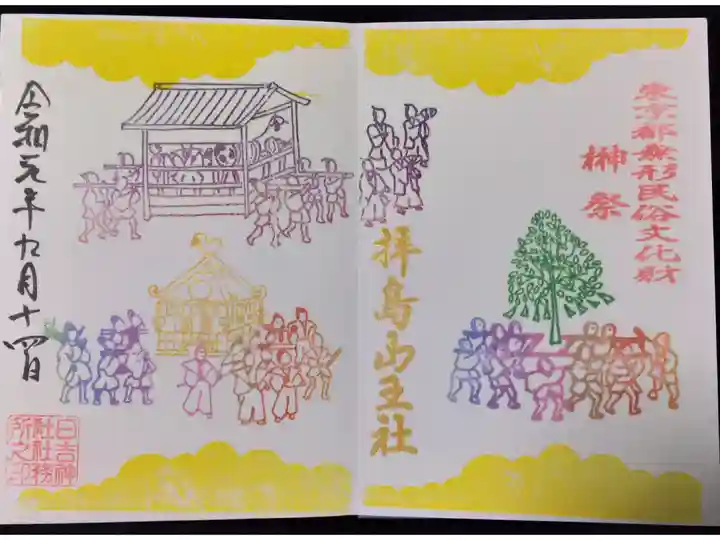 東京都無形民俗文化財
榊祭
拝島山王社
令和元年九月十四日
日吉神
社社務
所之印